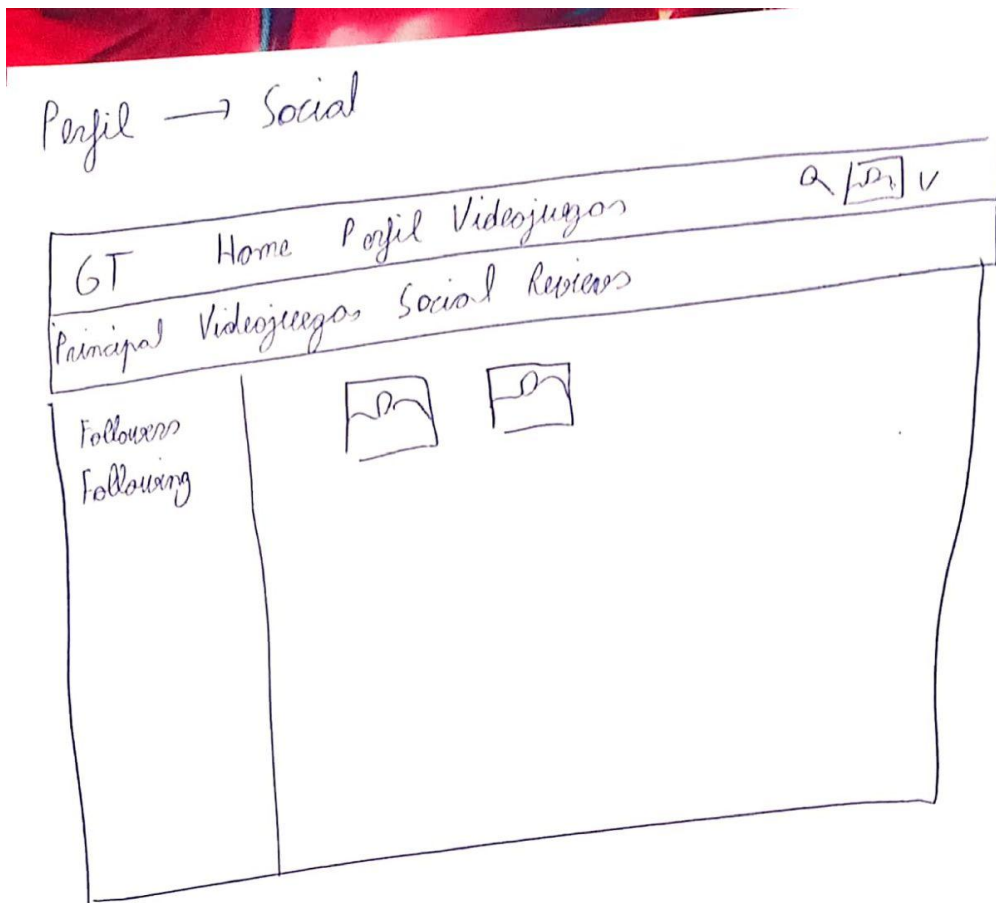 Perfil → Social
GT Home Perfil Videojuegos
Principal Videojuegos Social Reviews
Followers
Following